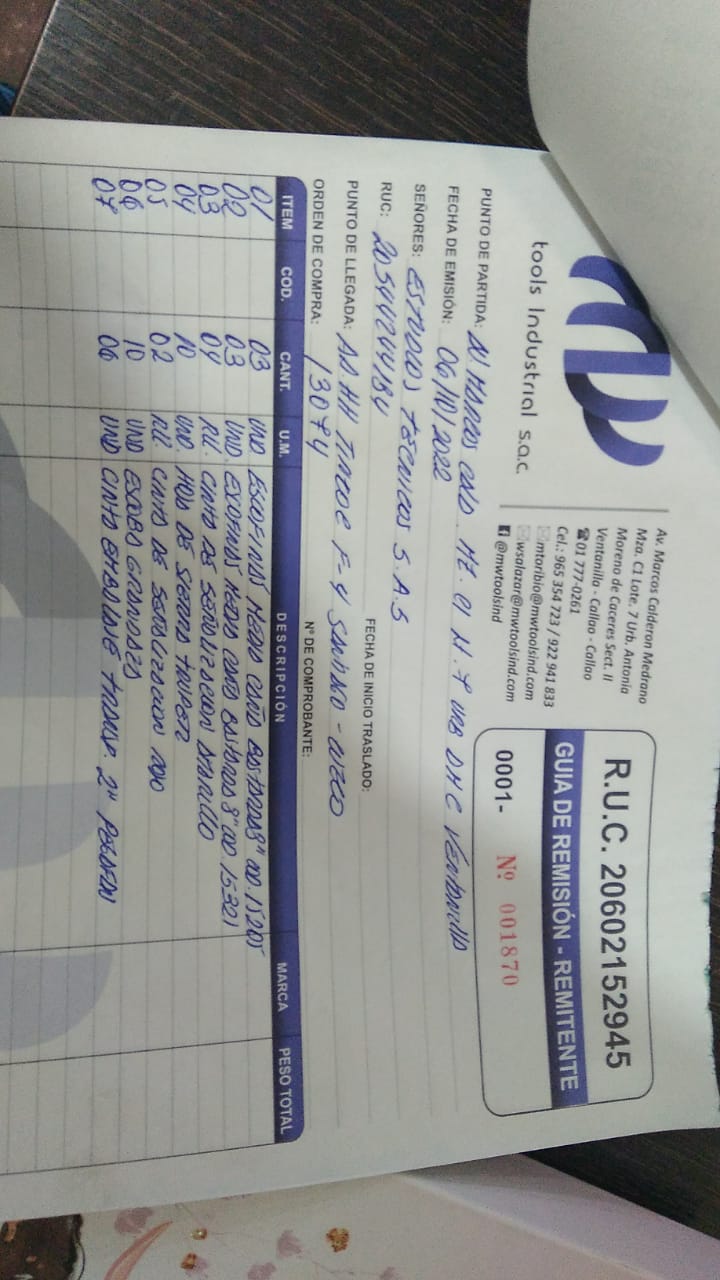 MW
tools Industrial s.a.c.
Av. Marcos Calderon Medrano
Mza. C1 Lote. 7 Urb. Antonia
Moreno de Caceres Sect. II
Ventanilla - Callao - Callao
☎01 777-0261
Cel.: 965 354 723 / 922 941 833
mtoribio@mwtoolsind.com
wsalazar@mwtoolsind.com
@mwtoolsind
R.U.C. 20602152945
GUIA DE REMISIÓN - REMITENTE
0001- Nº 001870
PUNTO DE PARTIDA: AV. MARCOS CALD. MZ. C1 LT. 7 URB AMC VENTANILLA
FECHA DE EMISIÓN: 06/10/2022
FECHA DE INICIO TRASLADO:
SEÑORES: ESTUDIOS TECNICOS S.A.S
RUC: 20544244184
PUNTO DE LLEGADA: AA.HH F-4 - CUZCO
ORDEN DE COMPRA: 13074
Nº DE COMPROBANTE:
ITEM COD. CANT. U.M. DESCRIPCIÓN MARCA PESO TOTAL
01 03 UND ESCOFINAS MEDIA CAÑA 8"
02 03 UND. ESCOFINAS MEDIA CAÑA 8" 15321
03 04 RLL. CINTA DE SEÑALIZACION AMARILLO
04 10 UND. HOJA DE SIERRA
05 02 RLL CINTA DE SEÑALIZACION ROJO
06 10 UND
07 06 UND CINTA EMBALAJE TRANSP. 2"